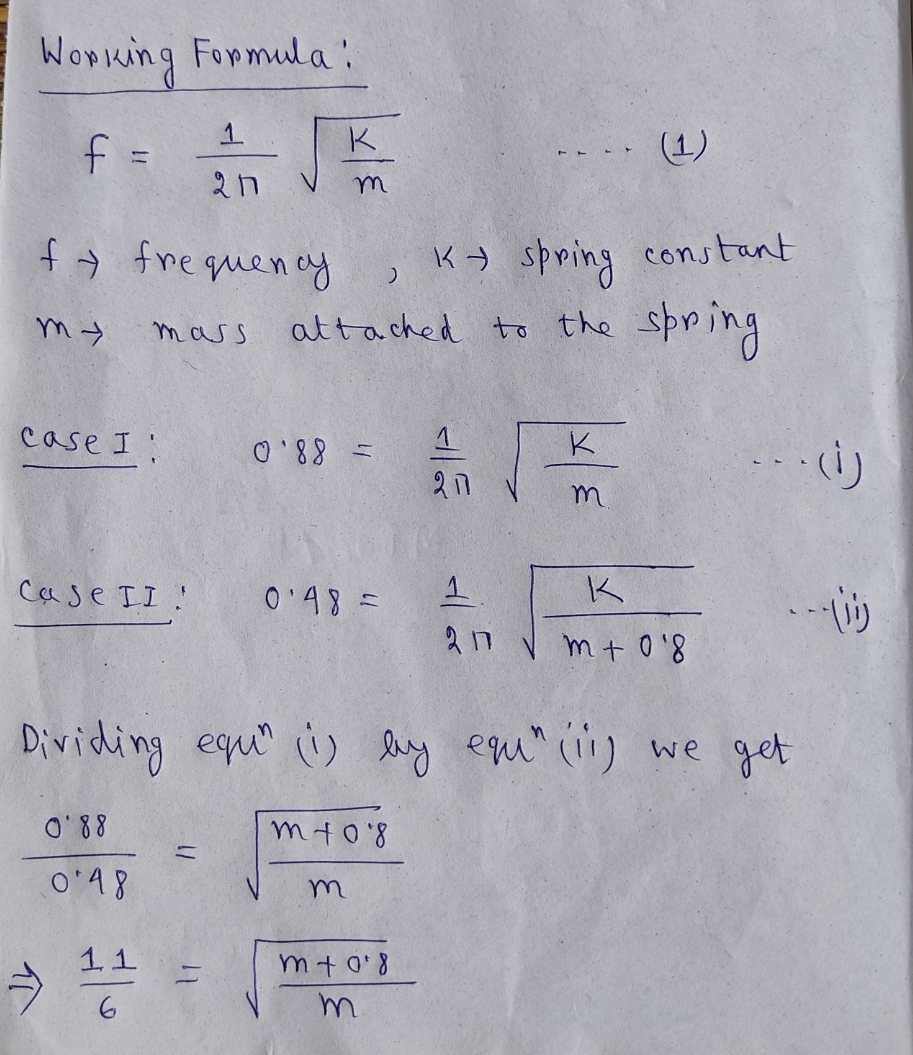 Working Formula:
f = 1/2π √(K/m) .... (1)
f → frequency , K → spring constant
m → mass attached to the spring
case I: 0.88 = 1/2π √(K/m) ...(i)
Case II: 0.48 = 1/2π √(K/(m+0.8)) ...(ii)
Dividing equⁿ (i) by equⁿ (ii) we get
0.88/0.48 = √((m+0.8)/m)
⇒ 11/6 = √((m+0.8)/m)